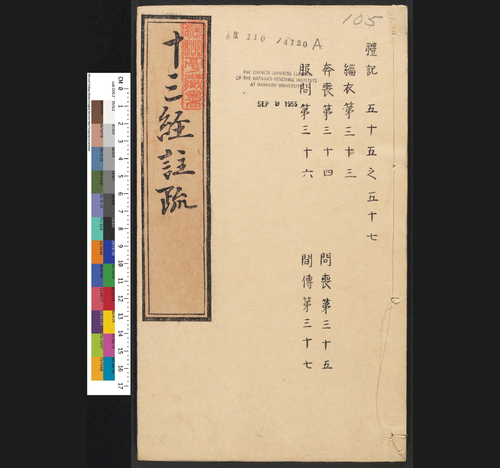 105
110 /4120 A
THE CHINESE JAPANESE LIBRARY
OF THE HARVARD-YENCHING INSTITUTE
AT HARVARD UNIVERSITY
SEP 9 1955
禮記 五十五之五十七
緇衣第三十三
奔喪第三十四
問喪第三十五
服問第三十六
間傳第三十七
十三經註疏
CM 0
1
2
3
4
5
6
7
8
9
10
11
12
13
14
15
16
17